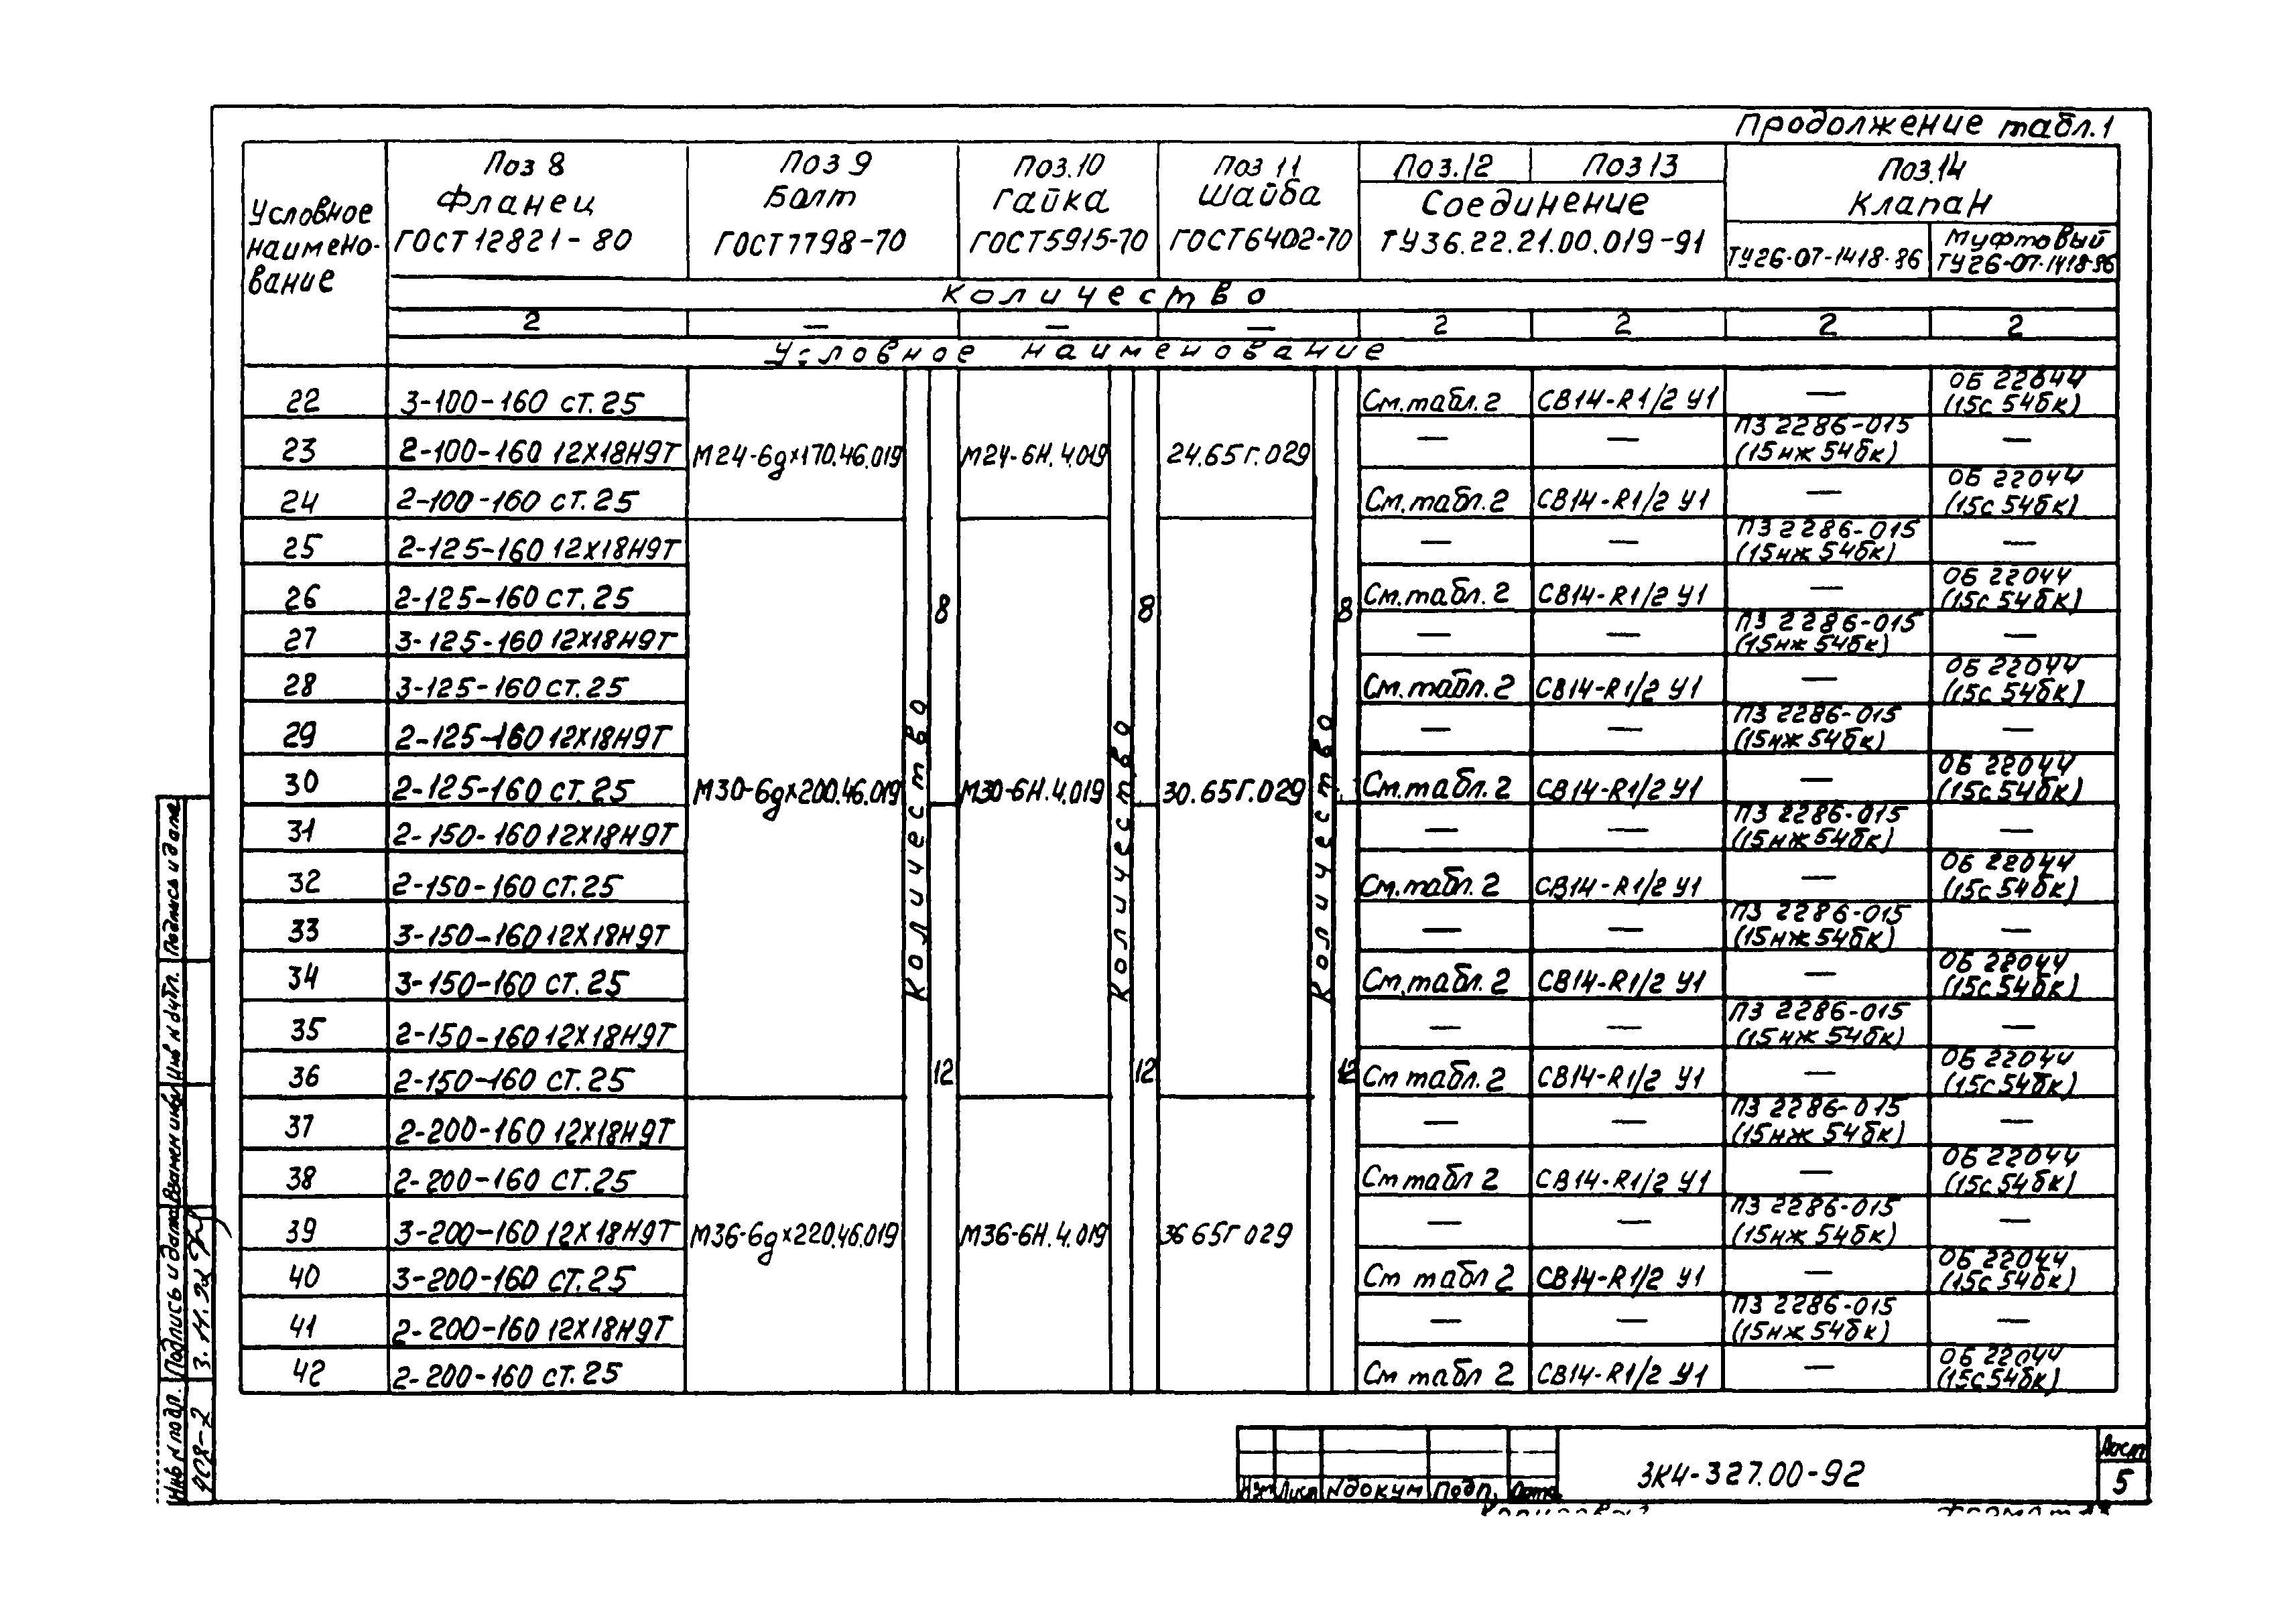 Продолжение табл.1
Условное наимено- вание
Поз 8 Фланец ГОСТ 12821-80
Поз 9 Болт ГОСТ 7798-70
Поз.10 Гайка ГОСТ 5915-70
Поз 11 Шайба ГОСТ 6402-70
Поз.12 Поз 13
Соединение ТУ36.22.21.00.019-91
Поз.14 Клапан
ТУ26-07-1418-86
Муфтовый ТУ26-07-1418-86
Количество
2 — — — 2 2 2 2
Условное наименование
22 3-100-160 ст.25 См.табл.2 СВ14-R1/2 У1 — ОБ 22044 (15с 54бк)
23 2-100-160 12Х18Н9Т М24-6g×170.46.019 М24-6Н.4.019 24.65Г.029 — — ПЗ 2286-015 (15нж 54бк) —
24 2-100-160 ст.25 См.табл.2 СВ14-R1/2 У1 — ОБ 22044 (15с 54бк)
25 2-125-160 12Х18Н9Т — — ПЗ 2286-015 (15нж 54бк) —
26 2-125-160 ст.25 8 8 8 См.табл.2 СВ14-R1/2 У1 — ОБ 22044 (15с 54бк)
27 3-125-160 12Х18Н9Т — — ПЗ 2286-015 (15нж 54бк) —
28 3-125-160 ст.25 См.табл.2 СВ14-R1/2 У1 — ОБ 22044 (15с 54бк)
29 2-125-160 12Х18Н9Т — — ПЗ 2286-015 (15нж 54бк) —
30 2-125-160 ст.25 М30-6g×200.46.019 Количество М30-6Н.4.019 Количество 30.65Г.029 Количество См.табл.2 СВ14-R1/2 У1 — ОБ 22044 (15с 54бк)
31 2-150-160 12Х18Н9Т — — ПЗ 2286-015 (15нж 54бк) —
32 2-150-160 ст.25 См.табл.2 СВ14-R1/2 У1 — ОБ 22044 (15с 54бк)
33 3-150-160 12Х18Н9Т — — ПЗ 2286-015 (15нж 54бк) —
34 3-150-160 ст.25 См.табл.2 СВ14-R1/2 У1 — ОБ 22044 (15с 54бк)
35 2-150-160 12Х18Н9Т — — ПЗ 2286-015 (15нж 54бк) —
36 2-150-160 ст.25 12 12 12 См табл.2 СВ14-R1/2 У1 — ОБ 22044 (15с 54бк)
37 2-200-160 12Х18Н9Т — — ПЗ 2286-015 (15нж 54бк) —
38 2-200-160 ст.25 См табл 2 СВ14-R1/2 У1 — ОБ 22044 (15с 54бк)
39 3-200-160 12Х18Н9Т М36-6g×220.46.019 М36-6Н.4.019 36 65Г 029 — — ПЗ 2286-015 (15нж 54бк) —
40 3-200-160 ст.25 См табл 2 СВ14-R1/2 У1 — ОБ 22044 (15с 54бк)
41 2-200-160 12Х18Н9Т — — ПЗ 2286-015 (15нж 54бк) —
42 2-200-160 ст.25 См табл 2 СВ14-R1/2 У1 — ОБ 22044 (15с 54бк)
Инв N подл. Подпись и дата Взамен инв Инв N дубл. Подпись и дата
408-2 3.11.92
Изм Лист N докум Подп. Дата
ЗК4-327.00-92
Лист
5